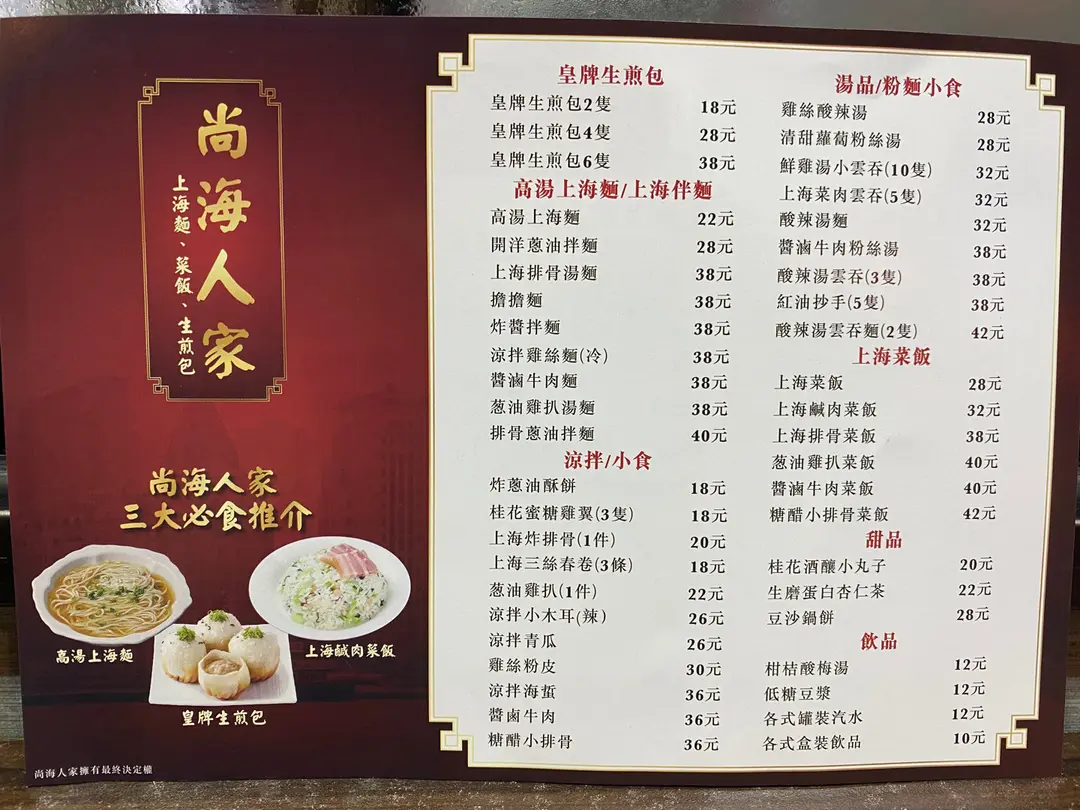 尚海人家
上海麵、菜飯、生煎包
尚海人家
三大必食推介
高湯上海麵
上海鹹肉菜飯
皇牌生煎包
尚海人家擁有最終決定權
皇牌生煎包
皇牌生煎包2隻 18元
皇牌生煎包4隻 28元
皇牌生煎包6隻 38元
高湯上海麵/上海伴麵
高湯上海麵 22元
開洋蔥油拌麵 28元
上海排骨湯麵 38元
擔擔麵 38元
炸醬拌麵 38元
涼拌雞絲麵(冷) 38元
醬滷牛肉麵 38元
葱油雞扒湯麵 38元
排骨蔥油拌麵 40元
涼拌/小食
炸蔥油酥餅 18元
桂花蜜糖雞翼(3隻) 18元
上海炸排骨(1件) 20元
上海三絲春卷(3條) 18元
葱油雞扒(1件) 22元
涼拌小木耳(辣) 26元
涼拌青瓜 26元
雞絲粉皮 30元
涼拌海蜇 36元
醬鹵牛肉 36元
糖醋小排骨 36元
湯品/粉麵小食
雞絲酸辣湯 28元
清甜蘿蔔粉絲湯 28元
鮮雞湯小雲吞(10隻) 32元
上海菜肉雲吞(5隻) 32元
酸辣湯麵 32元
醬滷牛肉粉絲湯 38元
酸辣湯雲吞(3隻) 38元
紅油抄手(5隻) 38元
酸辣湯雲吞麵(2隻) 42元
上海菜飯
上海菜飯 28元
上海鹹肉菜飯 32元
上海排骨菜飯 38元
葱油雞扒菜飯 40元
醬滷牛肉菜飯 40元
糖醋小排骨菜飯 42元
甜品
桂花酒釀小丸子 20元
生磨蛋白杏仁茶 22元
豆沙鍋餅 28元
飲品
柑桔酸梅湯 12元
低糖豆漿 12元
各式罐裝汽水 12元
各式盒裝飲品 10元